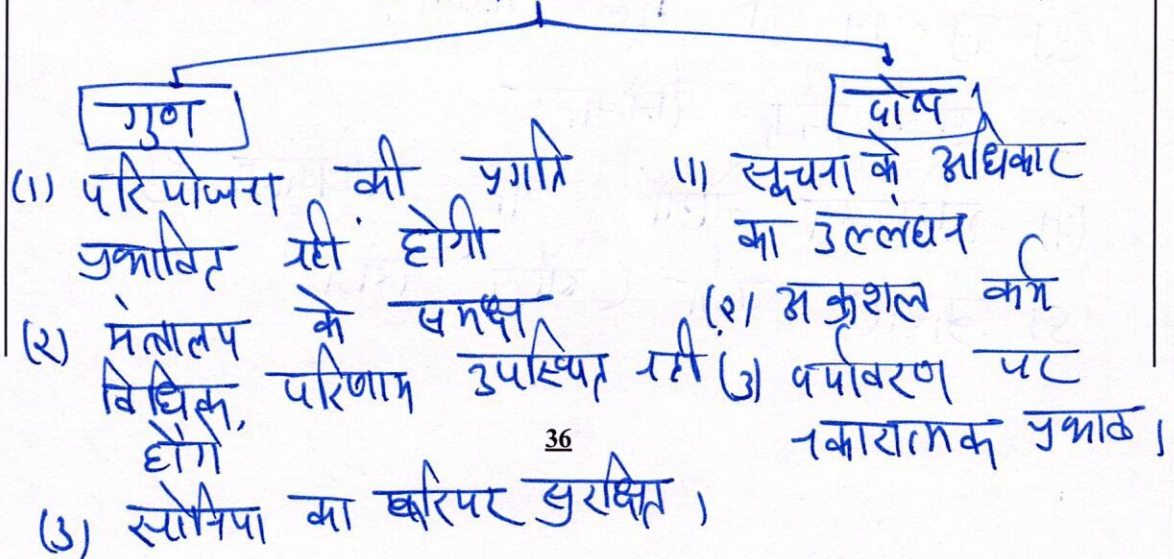 गुण
(1) परियोजना की प्रगति
प्रभावित नहीं होगी
(2) मंत्रालय के समक्ष
विधिक परिणाम उपस्थित नहीं
होंगे
(3) सोनिया का करियर सुरक्षित।
दोष
(1) सूचना के अधिकार
का उल्लंघन
(2) अकुशल कर्म
(3) पर्यावरण पर
नकारात्मक प्रभाव।
36